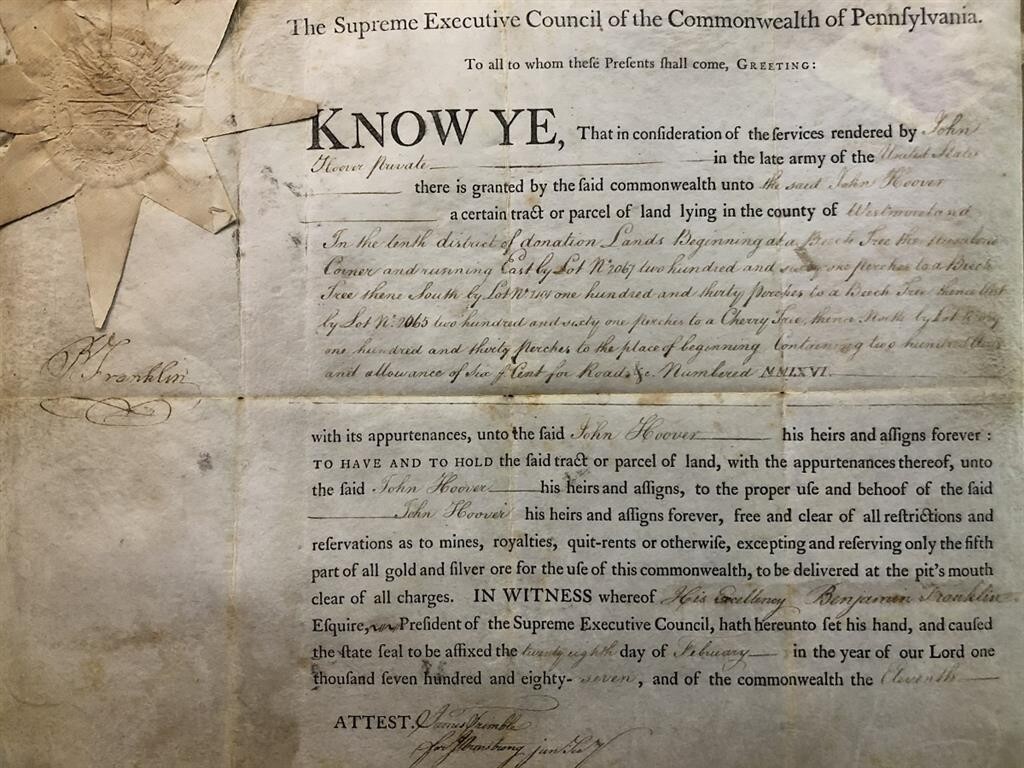 The Supreme Executive Council of the Commonwealth of Pennſylvania.
To all to whom theſe Preſents ſhall come, GREETING:
KNOW YE, That in conſideration of the ſervices rendered by John
Hoover Private in the late army of the United States
there is granted by the ſaid commonwealth unto the said John Hoover
a certain tract or parcel of land lying in the county of Westmoreland
In the tenth district of donation Lands Beginning at a Beech Tree the
Corner and running East by Lot No. 2067 two hundred and sixty one perches to a Beech
Tree thence South by Lot No. one hundred and thirty Perches to a Beech Tree thence West
by Lot No. 2065 two hundred and sixty one perches to a Cherry Tree, thence North by Lot
one hundred and thirty perches to the place of beginning Containing two hundred
and allowance of Six Ct. Cent for Roads &c. Numbered MMLXVI.
B Franklin
with its appurtenances, unto the ſaid John Hoover his heirs and aſſigns forever :
TO HAVE AND TO HOLD the ſaid tract or parcel of land, with the appurtenances thereof, unto
the ſaid John Hoover his heirs and aſſigns, to the proper uſe and behoof of the ſaid
John Hoover his heirs and aſſigns forever, free and clear of all reſtrictions and
reſervations as to mines, royalties, quit-rents or otherwiſe, excepting and reſerving only the fifth
part of all gold and ſilver ore for the uſe of this commonwealth, to be delivered at the pit's mouth
clear of all charges. IN WITNESS whereof His Excellency Benjamin Franklin
Eſquire, Preſident of the Supreme Executive Council, hath hereunto ſet his hand, and cauſed
the ſtate ſeal to be affixed the twenty eighth day of February in the year of our Lord one
thouſand ſeven hundred and eighty- seven, and of the commonwealth the Eleventh
ATTEST. James Trimble
for J Armstrong jun Secy